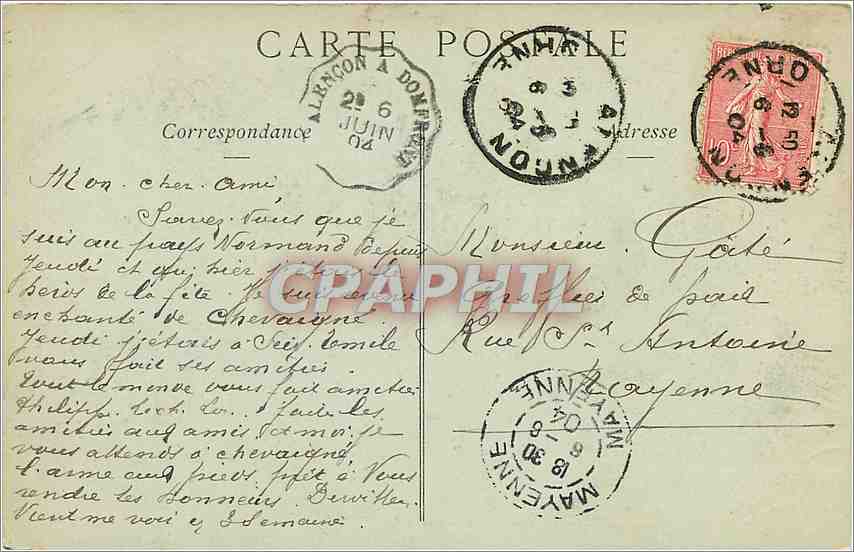 CARTE POSTALE
Correspondance
Adresse
ALENÇON A DOMFRONT
2º 6
JUIN
04
ALENÇON
ORNE
RÉPUBLIQUE
10
ALENÇON
ORNE
12 50
6 - 6
04
Mon cher ami
Savez-vous que je
suis au pays Normand depuis
jeudi et qu'hier j'étais le
heros de la fête. Je suis
enchanté de Chevaigné.
Jeudi j'étais à
vous fait ses amitiés.
tout le monde vous fait amitiés
Philipp. faites les
amitiés aux amis et moi je
vous attends à chevaigné
l'arme aux pieds prêt à vous
rendre les honneurs.
Vient me voir 3 Semaines.
Monsieur Gâté
Greffier de paix
Rue St Antoine
Mayenne
MAYENNE
MAYENNE
18 30
6 - 6
04
CPAPHIL